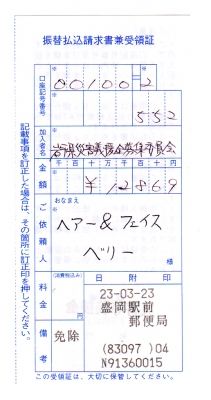 振替払込請求書兼受領証
口座記号番号
00100 2
552
加入者名
岩手県災害義援金募集委員会
金額
千 百 十 万 千 百 十 円
¥12869
ご依頼人
おなまえ
ヘアー&フェイス
ベリー
様
料金
(消費税込み)
免除
備考
日附印
23-03-23
盛岡駅前
郵便局
(83097)04
N91360015
この受領証は、大切に保管してください。
記載事項を訂正した場合は、その箇所に訂正印を押してください。